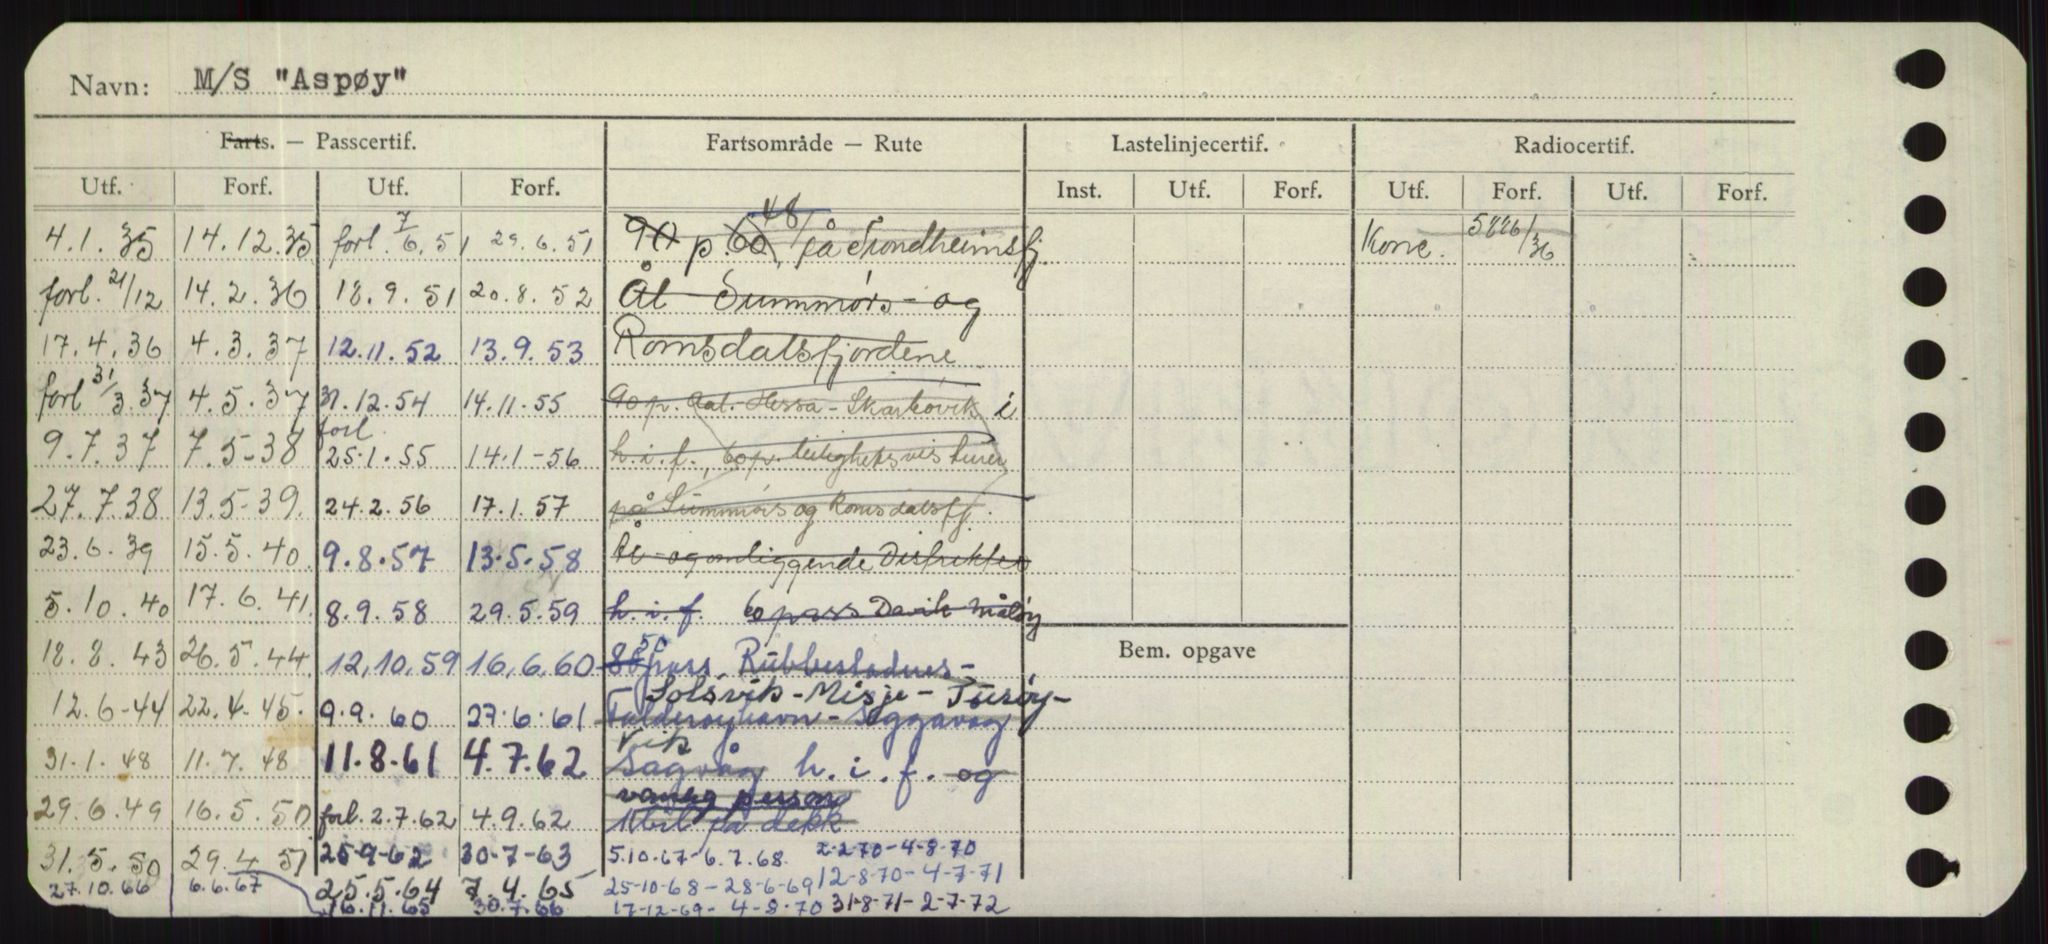 Navn: M/S "Aspøy"
Farts. — Passcertif. Fartsområde — Rute Lastelinjecertif. Radiocertif.
Utf. Forf. Utf. Forf. Inst. Utf. Forf. Utf. Forf. Utf. Forf.
48
4.1.35 14.12.35 forl. 7/6.51 29.6.51 90 p. 60 på Trondheimsfj. Konc. 5886/36
forl. 21/12 14.2.36 18.9.51 20.8.52 Ål - Sunnmørs- og
17.4.36 4.3.37 12.11.52 13.9.53 Romsdalsfjordene
forl 31/3.37 4.5.37 31.12.54 14.11-55 90 p. Aal. Hessa - Skarbøvik i
forl
9.7.37 7.5-38 25.1.55 14.1-56 h.i.f., 60 p. leilighetsvis turer
27.7.38 13.5-39. 24.2.56 17.1.57 på Sunnmørs og Romsdalsfj.
23.6.39 15.5.40 9.8.57 13.5.58 Ål - og omliggende Distrikter
5.10.40 17.6.41. 8.9.58 29.5.59 h.i.f. 60 pass Davik Måløy
50
18.8.43 26.5.44 12.10.59 16.6.60 pass. Rubbestadnes - Bem. opgave
Solsvik - Misje - Turøy -
12.6-44 22.4.45. 9.9.60 27.6.61 - Søggavåg
vik
31.1.48 11.7.48 11.8.61 4.7.62 Sagvåg h.i.f. og
vanleg person
29.6.49 16.5.50 forl. 2.7.62 4.9.62 1 bil på dekk
31.5.50 29.4.51 25-9-62 30-7-63 5.10-67-6.7.68. 2-2-70-4-8-70
27.10.66 6.6.67 25.5.64 7.4.65 25-10-68-28-6-69 12-8-70-4-7-71
16.11.65 30.7.66 17-12-69-4-8-70 31-8-71-2-7-72